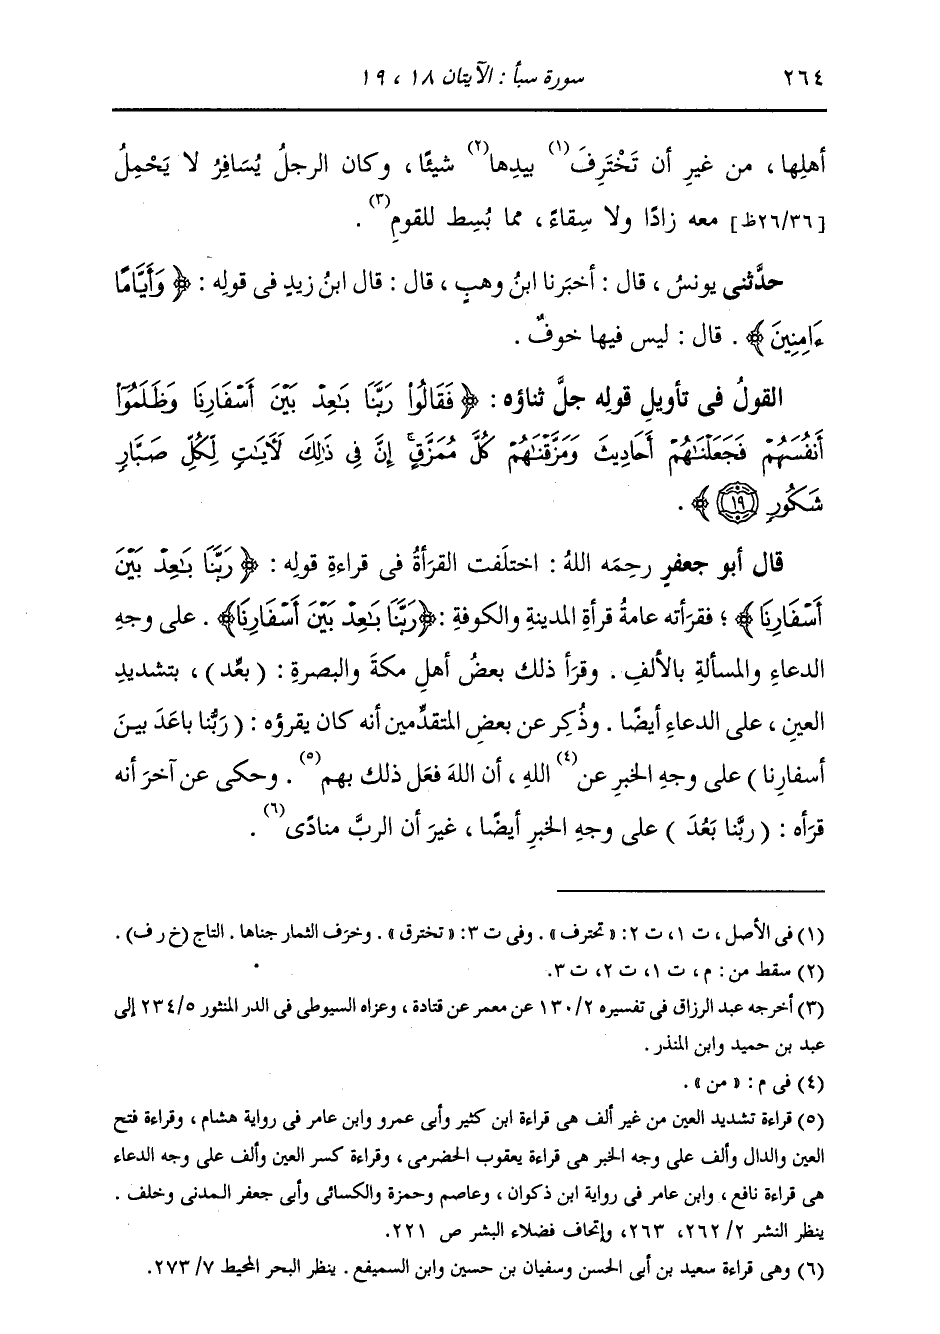 ٢٦٤ سورة سبأ : الآيتان ١٨ ، ١٩
أهلِها ، من غيرِ أن تَخْتَرِفَ(١) بيدِها(٢) شيئًا ، وكان الرجلُ يُسَافِرُ لا يَحْمِلُ
[٢٦/٣٦ظ] معه زادًا ولا سِقاءً ، مما بُسِط للقومِ(٣) .
حدَّثنى يونسُ ، قال : أخبَرنا ابنُ وهبٍ ، قال : قال ابنُ زيدٍ فى قولِه : ﴿ وَأَيَّامًا
ءَامِنِينَ ﴾ . قال : ليس فيها خوفٌ .
القولُ فى تأويلِ قولِه جلَّ ثناؤه : ﴿ فَقَالُوا۟ رَبَّنَا بَـٰعِدْ بَيْنَ أَسْفَارِنَا وَظَلَمُوٓا۟
أَنفُسَهُمْ فَجَعَلْنَـٰهُمْ أَحَادِيثَ وَمَزَّقْنَـٰهُمْ كُلَّ مُمَزَّقٍ ۚ إِنَّ فِى ذَٰلِكَ لَآيَـٰتٍ لِّكُلِّ صَبَّارٍ
شَكُورٍ ﴿١٩﴾ ﴾ .
قال أبو جعفرٍ رحِمه اللهُ : اختلَفت القرَأةُ فى قراءةِ قولِه : ﴿ رَبَّنَا بَـٰعِدْ بَيْنَ
أَسْفَارِنَا ﴾ ؛ فقرَأته عامةُ قرأةِ المدينةِ والكوفةِ : ﴿رَبَّنَا بَـٰعِدْ بَيْنَ أَسْفَارِنَا﴾ . على وجهِ
الدعاءِ والمسألةِ بالألفِ . وقرَأ ذلك بعضُ أهلِ مكةَ والبصرةِ : ( بعِّد ) ، بتشديدِ
العينِ ، على الدعاءِ أيضًا . وذُكِر عن بعضِ المتقدِّمين أنه كان يقرؤه : ( رَبُّنا باعَدَ بينَ
أسفارِنا ) على وجهِ الخبرِ عن(٤) اللهِ ، أن اللهَ فعَل ذلك بهم(٥) . وحكى عن آخرَ أنه
قرَأه : ( ربَّنا بَعُدَ ) على وجهِ الخبرِ أيضًا ، غيرَ أن الربَّ منادًى(٦) .
(١) فى الأصل ، ت ١، ت ٢: « تحترف » . وفى ت ٣: « تخترق » . وخرَف الثمار جناها . التاج (خ ر ف) .
(٢) سقط من : م ، ت ١، ت ٢، ت ٣.
(٣) أخرجه عبد الرزاق فى تفسيره ١٣٠/٢ عن معمر عن قتادة ، وعزاه السيوطى فى الدر المنثور ٢٣٤/٥ إلى
عبد بن حميد وابن المنذر .
(٤) فى م : « من » .
(٥) قراءة تشديد العين من غير ألف هى قراءة ابن كثير وأبى عمرو وابن عامر فى رواية هشام ، وقراءة فتح
العين والدال وألف على وجه الخبر هى قراءة يعقوب الحضرمى ، وقراءة كسر العين وألف على وجه الدعاء
هى قراءة نافع ، وابن عامر فى رواية ابن ذكوان ، وعاصم وحمزة والكسائى وأبى جعفر المدنى وخلف .
ينظر النشر ٢/ ٢٦٢، ٢٦٣، وإتحاف فضلاء البشر ص ٢٢١.
(٦) وهى قراءة سعيد بن أبى الحسن وسفيان بن حسين وابن السميفع . ينظر البحر المحيط ٧/ ٢٧٣.